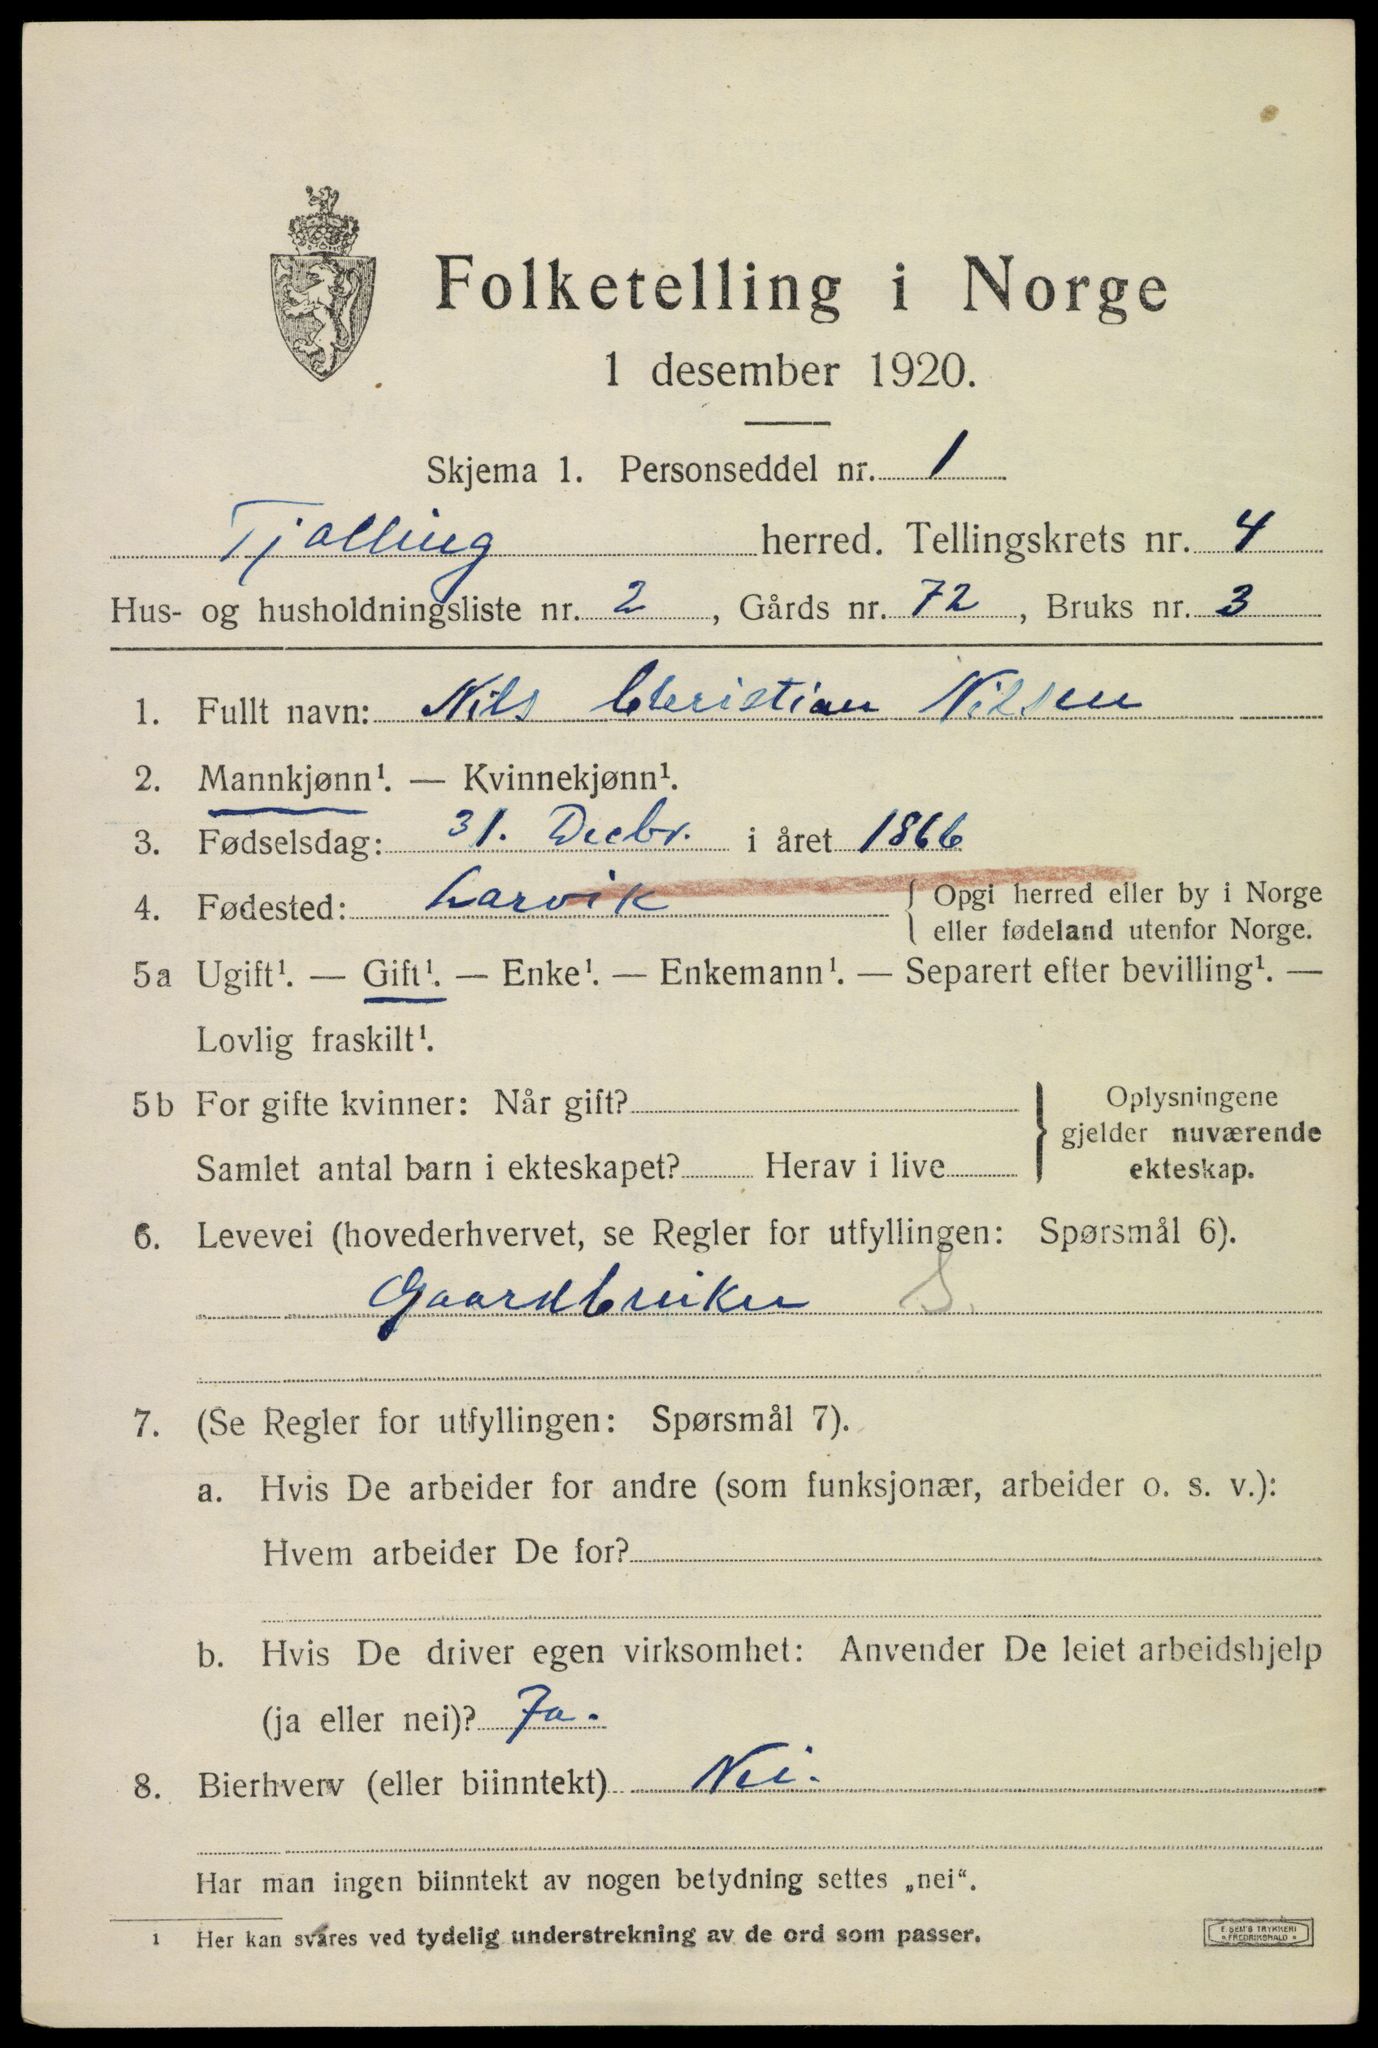 Folketelling i Norge
1 desember 1920.
Skjema 1. Personseddel nr. 1
Tjølling herred. Tellingskrets nr. 4
Hus- og husholdningsliste nr. 2, Gårds nr. 72, Bruks nr. 3
1. Fullt navn: Nils Christian Nilsen
2. Mannkjønn¹. — Kvinnekjønn¹.
3. Fødselsdag: 31. Decbr. i året 1866
4. Fødested: Larvik { Opgi herred eller by i Norge
eller fødeland utenfor Norge.
5a Ugift¹. — Gift¹. — Enke¹. — Enkemann¹. — Separert efter bevilling¹. —
Lovlig fraskilt¹.
5b For gifte kvinner: Når gift?
Samlet antal barn i ekteskapet? Herav i live
} Oplysningene
gjelder nuværende
ekteskap.
6. Levevei (hovederhvervet, se Regler for utfyllingen: Spørsmål 6).
Gaardbruker S.
7. (Se Regler for utfyllingen: Spørsmål 7).
a. Hvis De arbeider for andre (som funksjonær, arbeider o. s. v.):
Hvem arbeider De for?
b. Hvis De driver egen virksomhet: Anvender De leiet arbeidshjelp
(ja eller nei)? Ja.
8. Bierhverv (eller biinntekt) Nei.
Har man ingen biinntekt av nogen betydning settes „nei“.
1 Her kan svares ved tydelig understrekning av de ord som passer.
E. SEM'S TRYKKERI
FREDRIKSHALD